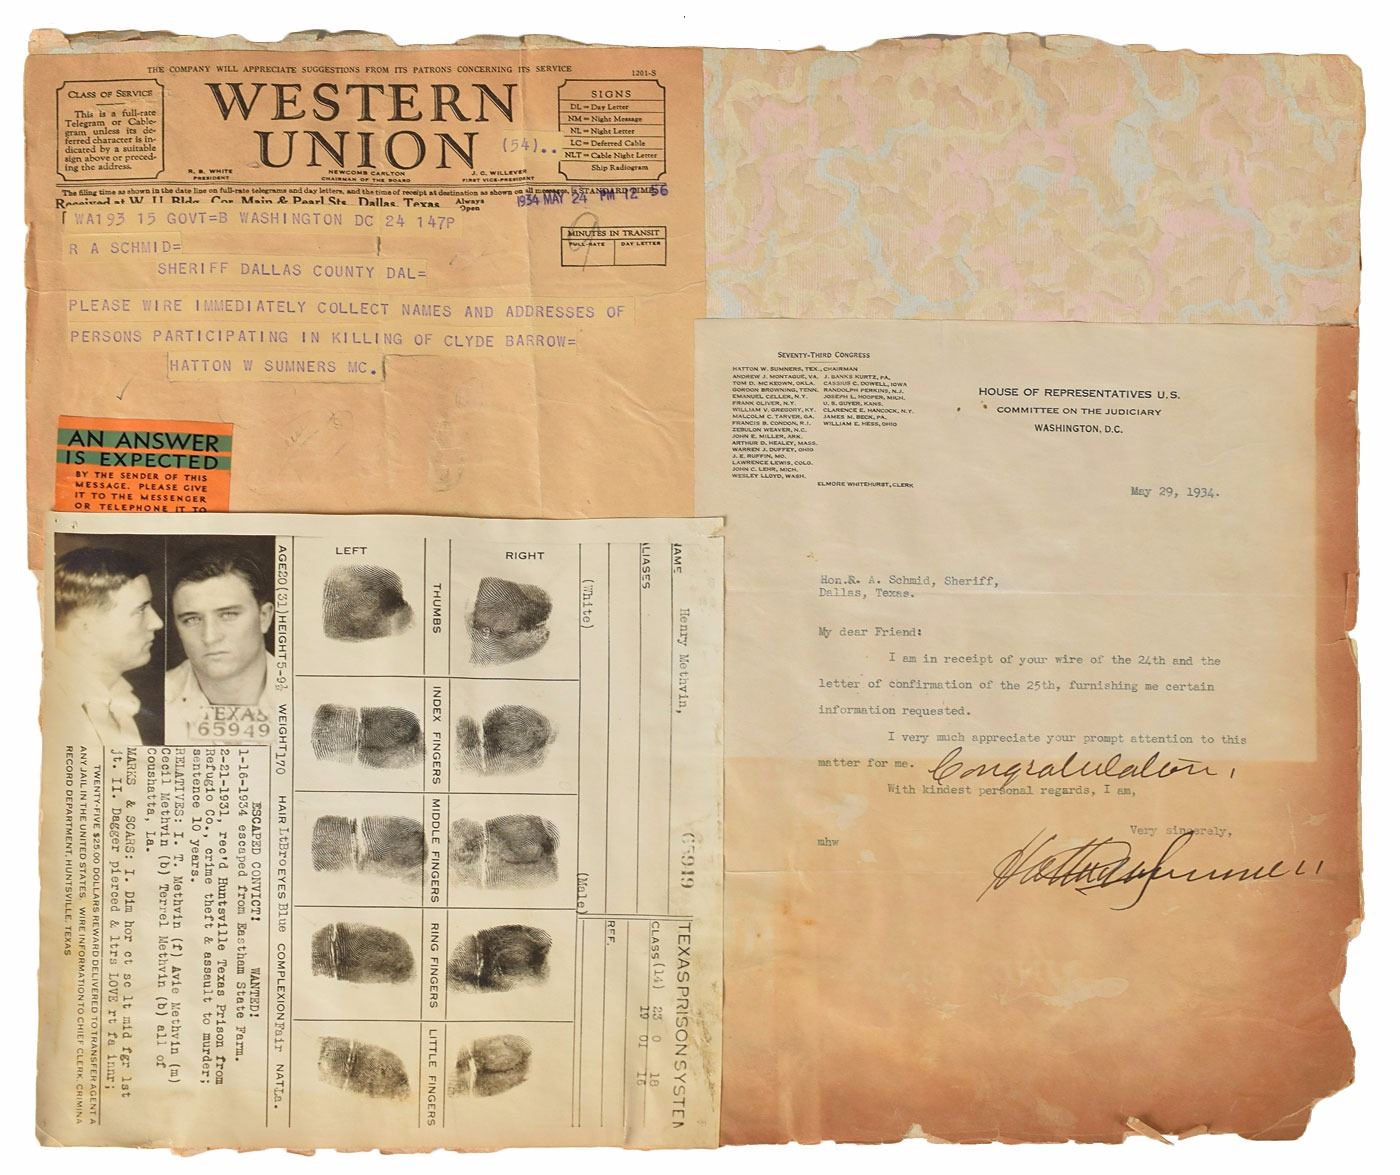 THE COMPANY WILL APPRECIATE SUGGESTIONS FROM ITS PATRONS CONCERNING ITS SERVICE
1201-S
CLASS OF SERVICE
This is a full-rate
Telegram or Cable-
gram unless its de-
ferred character is in-
dicated by a suitable
sign above or preced-
ing the address.
WESTERN
UNION
(54)..
R. B. WHITE
PRESIDENT
NEWCOMB CARLTON
CHAIRMAN OF THE BOARD
J. C. WILLEVER
FIRST VICE-PRESIDENT
SIGNS
DL = Day Letter
NM = Night Message
NL = Night Letter
LC = Deferred Cable
NLT = Cable Night Letter
Ship Radiogram
The filing time as shown in the date line on full-rate telegrams and day letters, and the time of receipt at destination as shown on all messages, is STANDARD TIME.
Received at W. U. Bldg. Cor. Main & Pearl Sts. Dallas, Texas. Always
Open
1934 MAY 24 PM 12 56
WA193 15 GOVT=B WASHINGTON DC 24 147P
MINUTES IN TRANSIT
FULL-RATE DAY LETTER
R A SCHMID=
SHERIFF DALLAS COUNTY DAL=
PLEASE WIRE IMMEDIATELY COLLECT NAMES AND ADDRESSES OF
PERSONS PARTICIPATING IN KILLING OF CLYDE BARROW=
HATTON W SUMNERS MC.
AN ANSWER
IS EXPECTED
BY THE SENDER OF THIS
MESSAGE. PLEASE GIVE
IT TO THE MESSENGER
OR TELEPHONE IT TO
SEVENTY-THIRD CONGRESS
HATTON W. SUMNERS, TEX., CHAIRMAN
ANDREW J. MONTAGUE, VA. J. BANKS KURTZ, PA.
TOM D. MCKEOWN, OKLA. CASSIUS C. DOWELL, IOWA
GORDON BROWNING, TENN. RANDOLPH PERKINS, N.J.
EMANUEL CELLER, N.Y. JOSEPH L. HOOPER, MICH.
FRANK OLIVER, N.Y. U. S. GUYER, KANS.
WILLIAM V. GREGORY, KY. CLARENCE E. HANCOCK, N.Y.
MALCOLM C. TARVER, GA. JAMES M. BECK, PA.
FRANCIS B. CONDON, R.I. WILLIAM E. HESS, OHIO
ZEBULON WEAVER, N.C.
JOHN E. MILLER, ARK.
ARTHUR D. HEALEY, MASS.
WARREN J. DUFFEY, OHIO
J. E. RUFFIN, MO.
LAWRENCE LEWIS, COLO.
JOHN C. LEHR, MICH.
WESLEY LLOYD, WASH.
ELMORE WHITEHURST, CLERK
HOUSE OF REPRESENTATIVES U.S.
COMMITTEE ON THE JUDICIARY
WASHINGTON, D.C.
May 29, 1934.
Hon.R. A. Schmid, Sheriff,
Dallas, Texas.
My dear Friend:
I am in receipt of your wire of the 24th and the
letter of confirmation of the 25th, furnishing me certain
information requested.
I very much appreciate your prompt attention to this
matter for me. Congratulations,
With kindest personal regards, I am,
Very sincerely,
mhw
Hatton W Sumners
NAME Henry Methvin, (65919 TEXAS PRISON SYSTEM
ALIASES CLASS (14) 23 0 18
19 01 16
REF.
(White) (Male)
RIGHT
THUMBS INDEX FINGERS MIDDLE FINGERS RING FINGERS LITTLE FINGERS
LEFT
AGE 20(31) HEIGHT 5-9½ WEIGHT 170 HAIR LtBro EYES Blue COMPLEXION Fair NAT La.
TEXAS
65949
ESCAPED CONVICT! WANTED!
1-16-1934 escaped from Eastham State Farm.
2-21-1931, rec'd Huntsville Texas Prison from
Refugio Co., crime theft & assault to murder;
sentence 10 years.
RELATIVES: I. T. Methvin (f) Avie Methvin (m)
Cecil Methvin (b) Terrel Methvin (b) all of
Coushatta, La.
MARKS & SCARS: I. Dim hor ct sc lt mid fgr 1st
jt. II. Dagger pierced & ltrs LOVE rt fa innr;
TWENTY-FIVE $25.00 DOLLARS REWARD DELIVERED TO TRANSFER AGENT A
ANY JAIL IN THE UNITED STATES. WIRE INFORMATION TO CHIEF CLERK, CRIMINA
RECORD DEPARTMENT, HUNTSVILLE, TEXAS